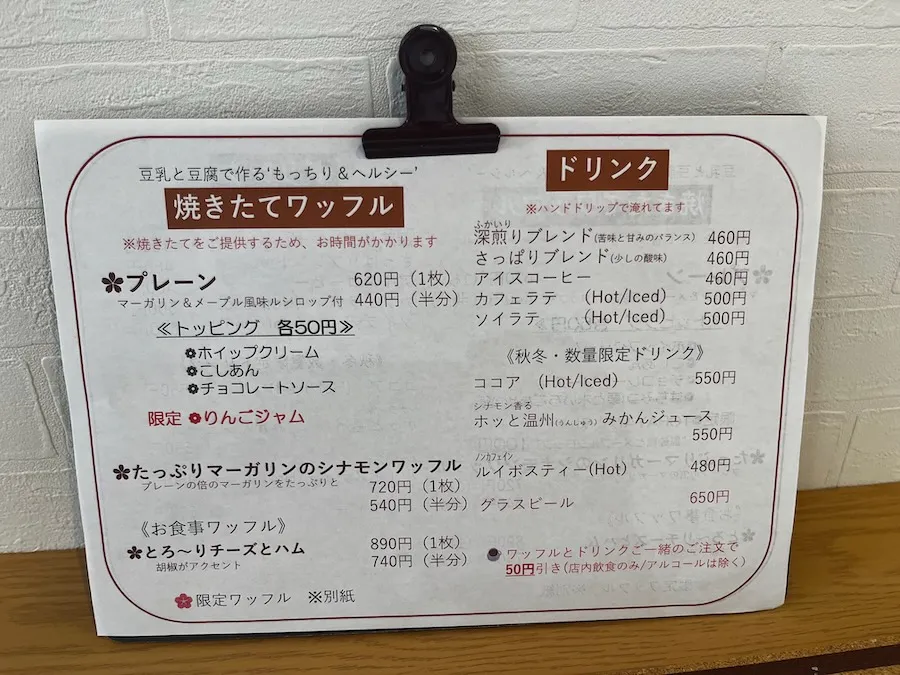 豆乳と豆腐で作る‘もっちり＆ヘルシー’
焼きたてワッフル
※焼きたてをご提供するため、お時間がかかります
プレーン 620円（1枚）
マーガリン＆メープル風味ルシロップ付 440円（半分）
≪トッピング 各50円≫
ホイップクリーム
こしあん
チョコレートソース
限定 りんごジャム
たっぷりマーガリンのシナモンワッフル
プレーンの倍のマーガリンをたっぷりと 720円（1枚）
540円（半分）
《お食事ワッフル》
とろ～りチーズとハム 890円（1枚）
胡椒がアクセント 740円（半分）
限定ワッフル ※別紙
ドリンク
※ハンドドリップで淹れてます
ふかいり
深煎りブレンド(苦味と甘みのバランス) 460円
さっぱりブレンド(少しの酸味) 460円
アイスコーヒー 460円
カフェラテ (Hot/Iced) 500円
ソイラテ (Hot/Iced) 500円
《秋冬・数量限定ドリンク》
ココア (Hot/Iced) 550円
シナモン香る
ホッと温州(うんしゅう)みかんジュース
550円
ノンカフェイン
ルイボスティー(Hot) 480円
グラスビール 650円
ワッフルとドリンクご一緒のご注文で
50円引き(店内飲食のみ/アルコールは除く)